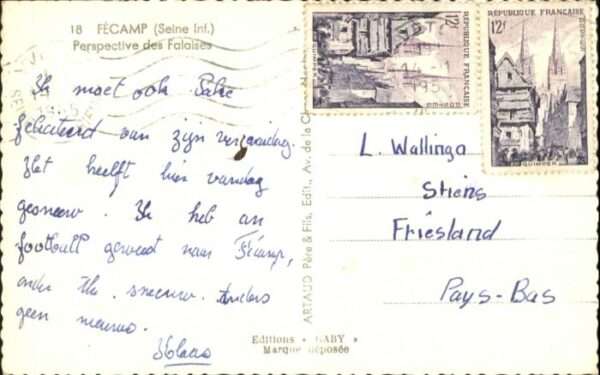 18 FÉCAMP (Seine Inf.)
Perspective des Falaises
Ik moet ook
feliciteerd van zijn verjaardag.
Het heefft hier vandag
gesneeuw. Ik heb an
football geweest naar Fécamp,
onder the sneeuw. Anders
geen nieuws.
Klaas
RÉPUBLIQUE FRANÇAISE
12f
QUIMPER
RÉPUBLIQUE FRANÇAISE
12f
QUIMPER
L. Wallinga
Stiens
Friesland
Pays-Bas
ARTAUD Père & Fils, Edit., Av. de la
Editions "GABY"
Marque déposée